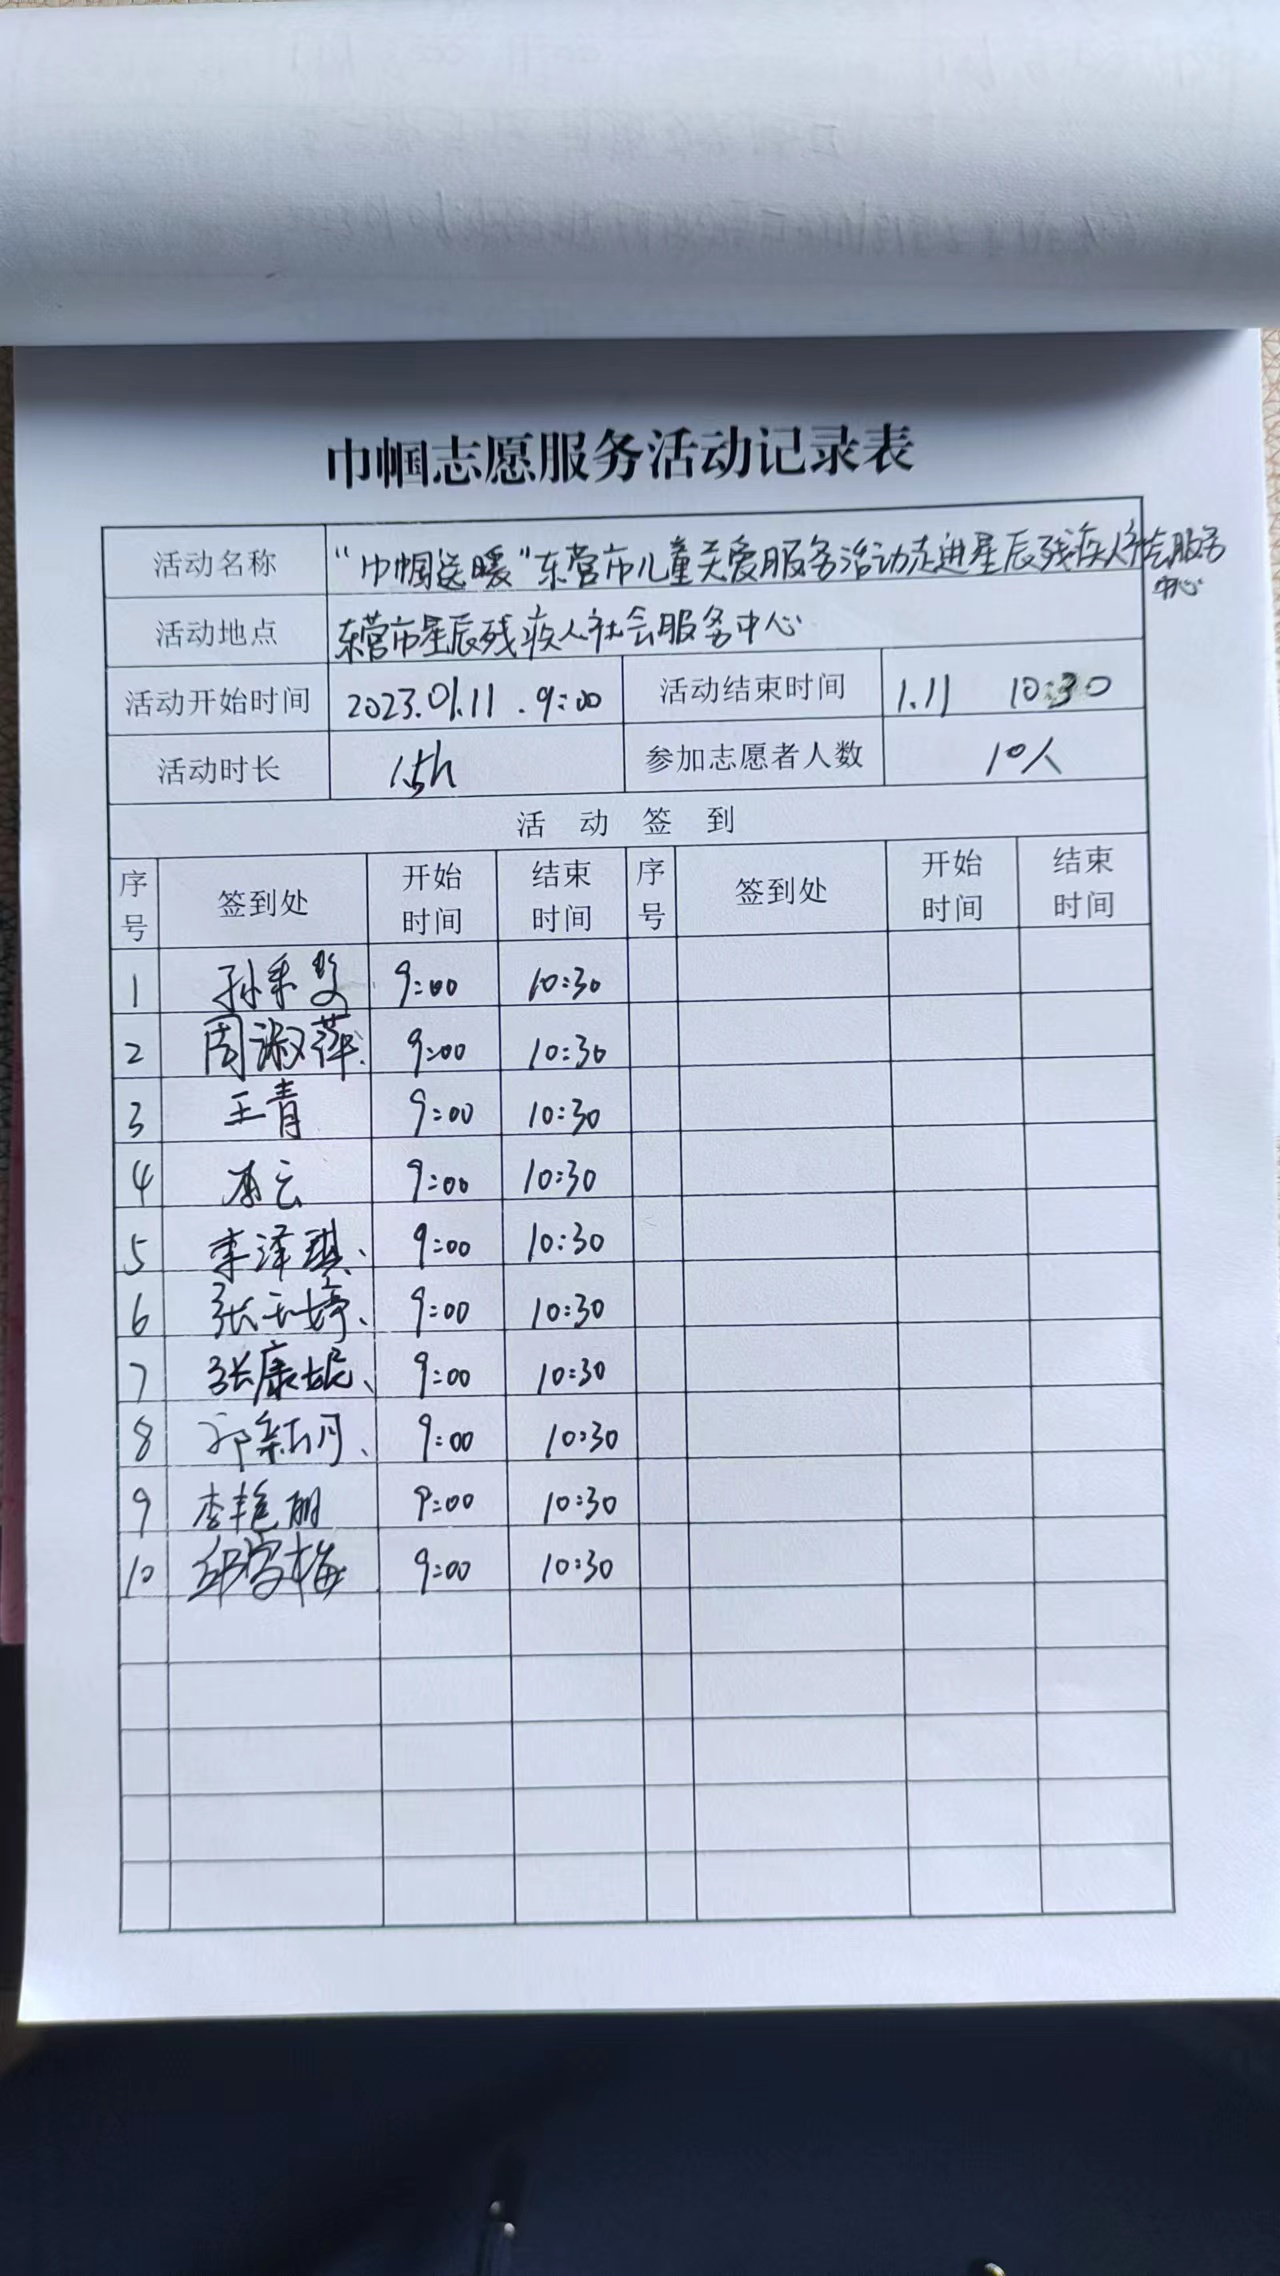 巾帼志愿服务活动记录表
活动名称 “巾帼送暖”东营市儿童关爱服务活动走进星辰残疾人社会服务
中心
活动地点 东营市星辰残疾人社会服务中心
活动开始时间 2023.01.11 . 9:00 活动结束时间 1.11 10:30
活动时长 1.5h 参加志愿者人数 10人
活 动 签 到
序号 签到处 开始时间 结束时间 序号 签到处 开始时间 结束时间
1 9:00 10:30
2 周淑萍. 9:00 10:30
3 王青 9:00 10:30
4 9:00 10:30
5 李泽琪、 9:00 10:30
6 张玉婷、 9:00 10:30
7 张康妮、 9:00 10:30
8 郭新月、 9:00 10:30
9 李艳丽 9:00 10:30
10 9:00 10:30